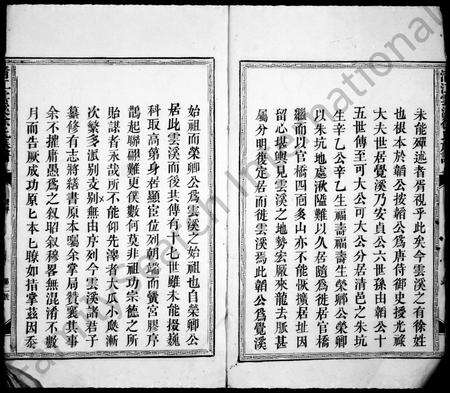 未能殫述者胥視乎此矣今雲溪之有徐姓
也根本於韜公按韜公爲唐侍御史授光祿
大夫世居覺溪乃安貞公六世孫由韜公十
五世傳至大公可大公分居清邑之朱坑
生辛乙公辛乙生福壽福壽生榮卿公榮卿
以朱坑地處湫隘難以久居隨爲徙居官橋
繼而以官橋四面多山亦不能恢擴居址因
留心堪輿見雲溪之地勢宏厰來龍去脈甚
屬分明復定居而徙雲溪焉此韜公爲覺溪
始祖而榮卿公爲雲溪之始祖也自榮卿公
居此雲溪而後其傳有十七世雖未能掇巍
科取高第身居顯宦位列朝堂而黌宮膠序
鵲起聯翩難更僕數何莫非祖功宗德之所
貽謀者永哉所不能仰先澤者大小小嵗漸
次繁多派别支别無由序列今雲溪諸君子
纂修有志將舊書原本囑余掌局賛襄其事
余不揣庸愚爲之叙昭叙穆畧無混淆不數
月而告厥成功原匕本匕瞭如指掌茲因蔡
FamilySearch International